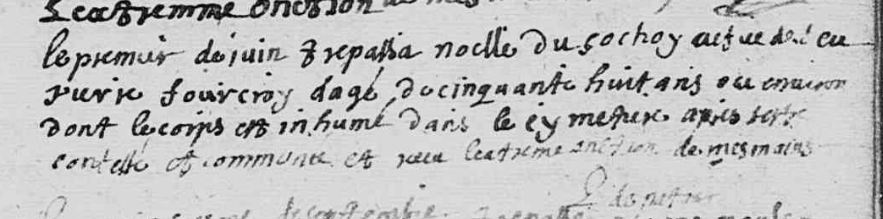 Lextremme onction de mes
le premier de juin trepassa noelle du sochoy vefve de feu
pierre fourcroy dagé de cinquante huit ans ou environ
dont le corps est inhumé dans le cymetiere apres sestre
confessé et communié et receu lextreme onction de mes mains
trepassa